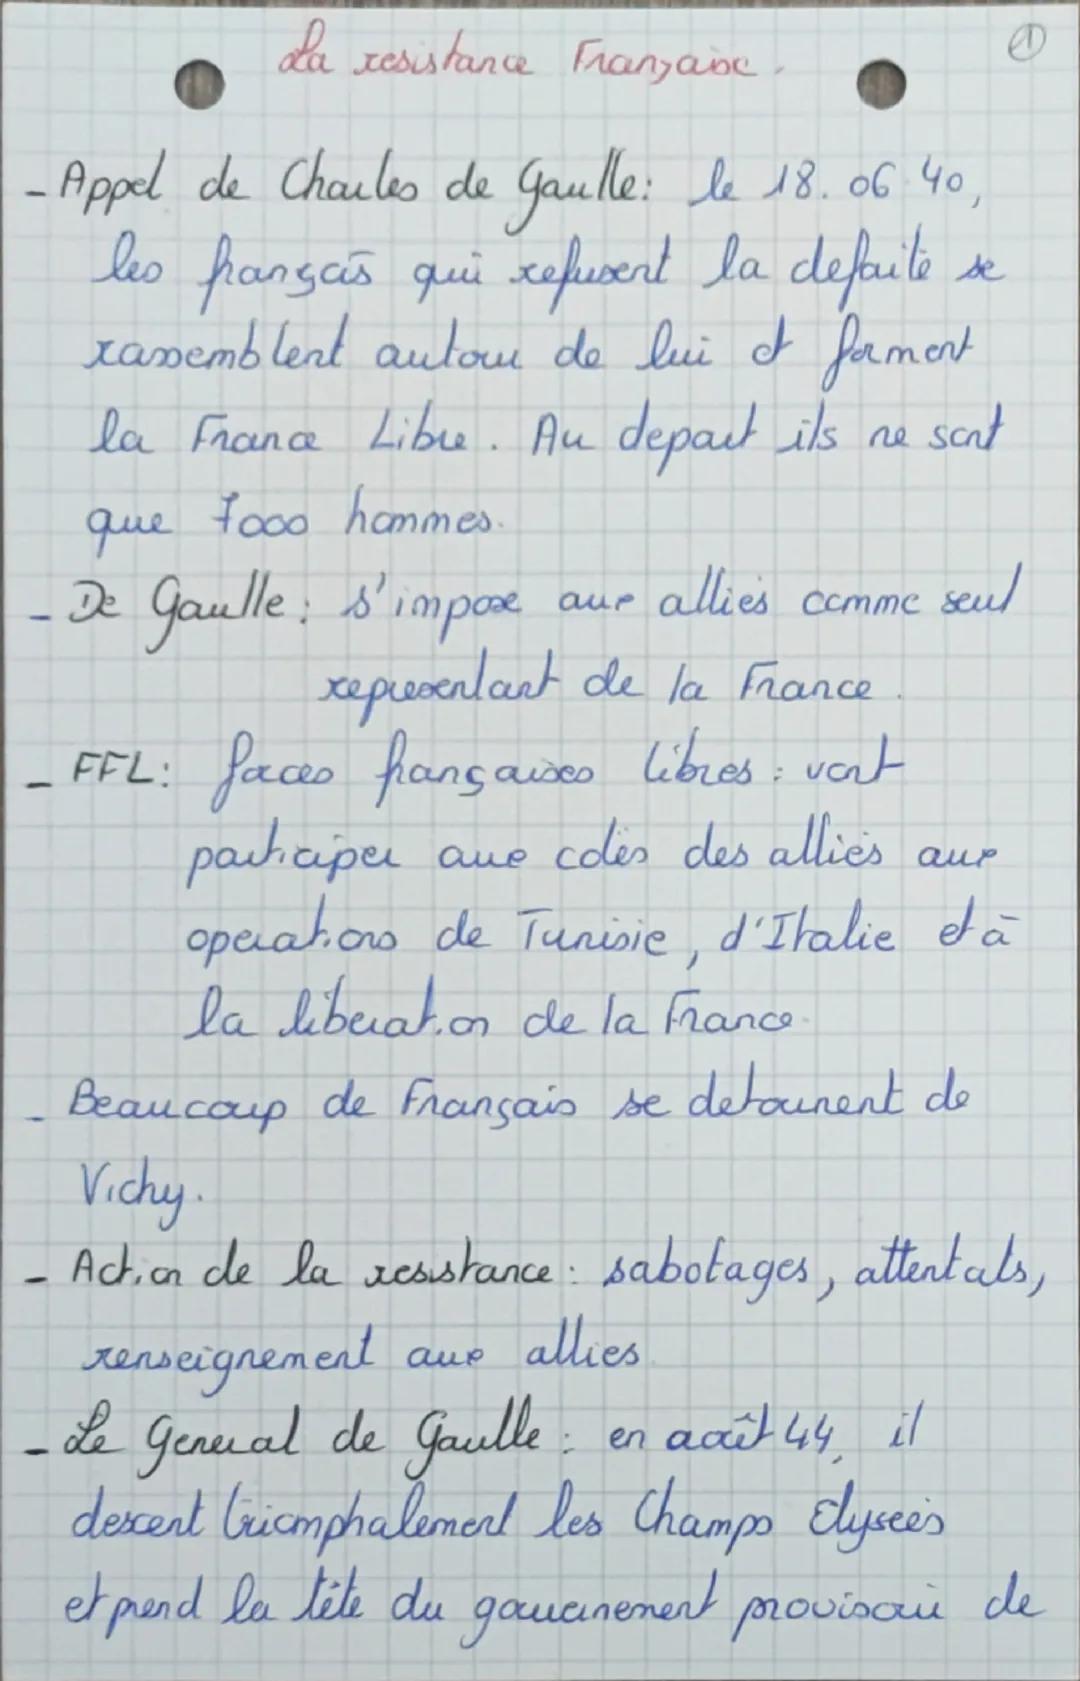 La resistance Française.
①
- Appel de Charles de Gaulle: le 18.06 40,
les français qui refusent la defaite se
rassemblent autour de lui et forment
la France Libre. Au depart ils ne sont
que 7000 hommes.
- De Gaulle: s'impose aux alliés comme seul
representant de la France.
- FFL: forces françaises libres: vont
participer aux cotés des alliés aux
operations de Tunisie, d'Italie et à
la liberation de la France.
- Beaucoup de Français se detournent de
Vichy.
- Action de la resistance: sabotages, attentats,
renseignement aux allies
- Le General de Gaulle: en août 44, il
descent triomphalement les Champs Elyseés
et prend la tête du gouvernement provisoire de